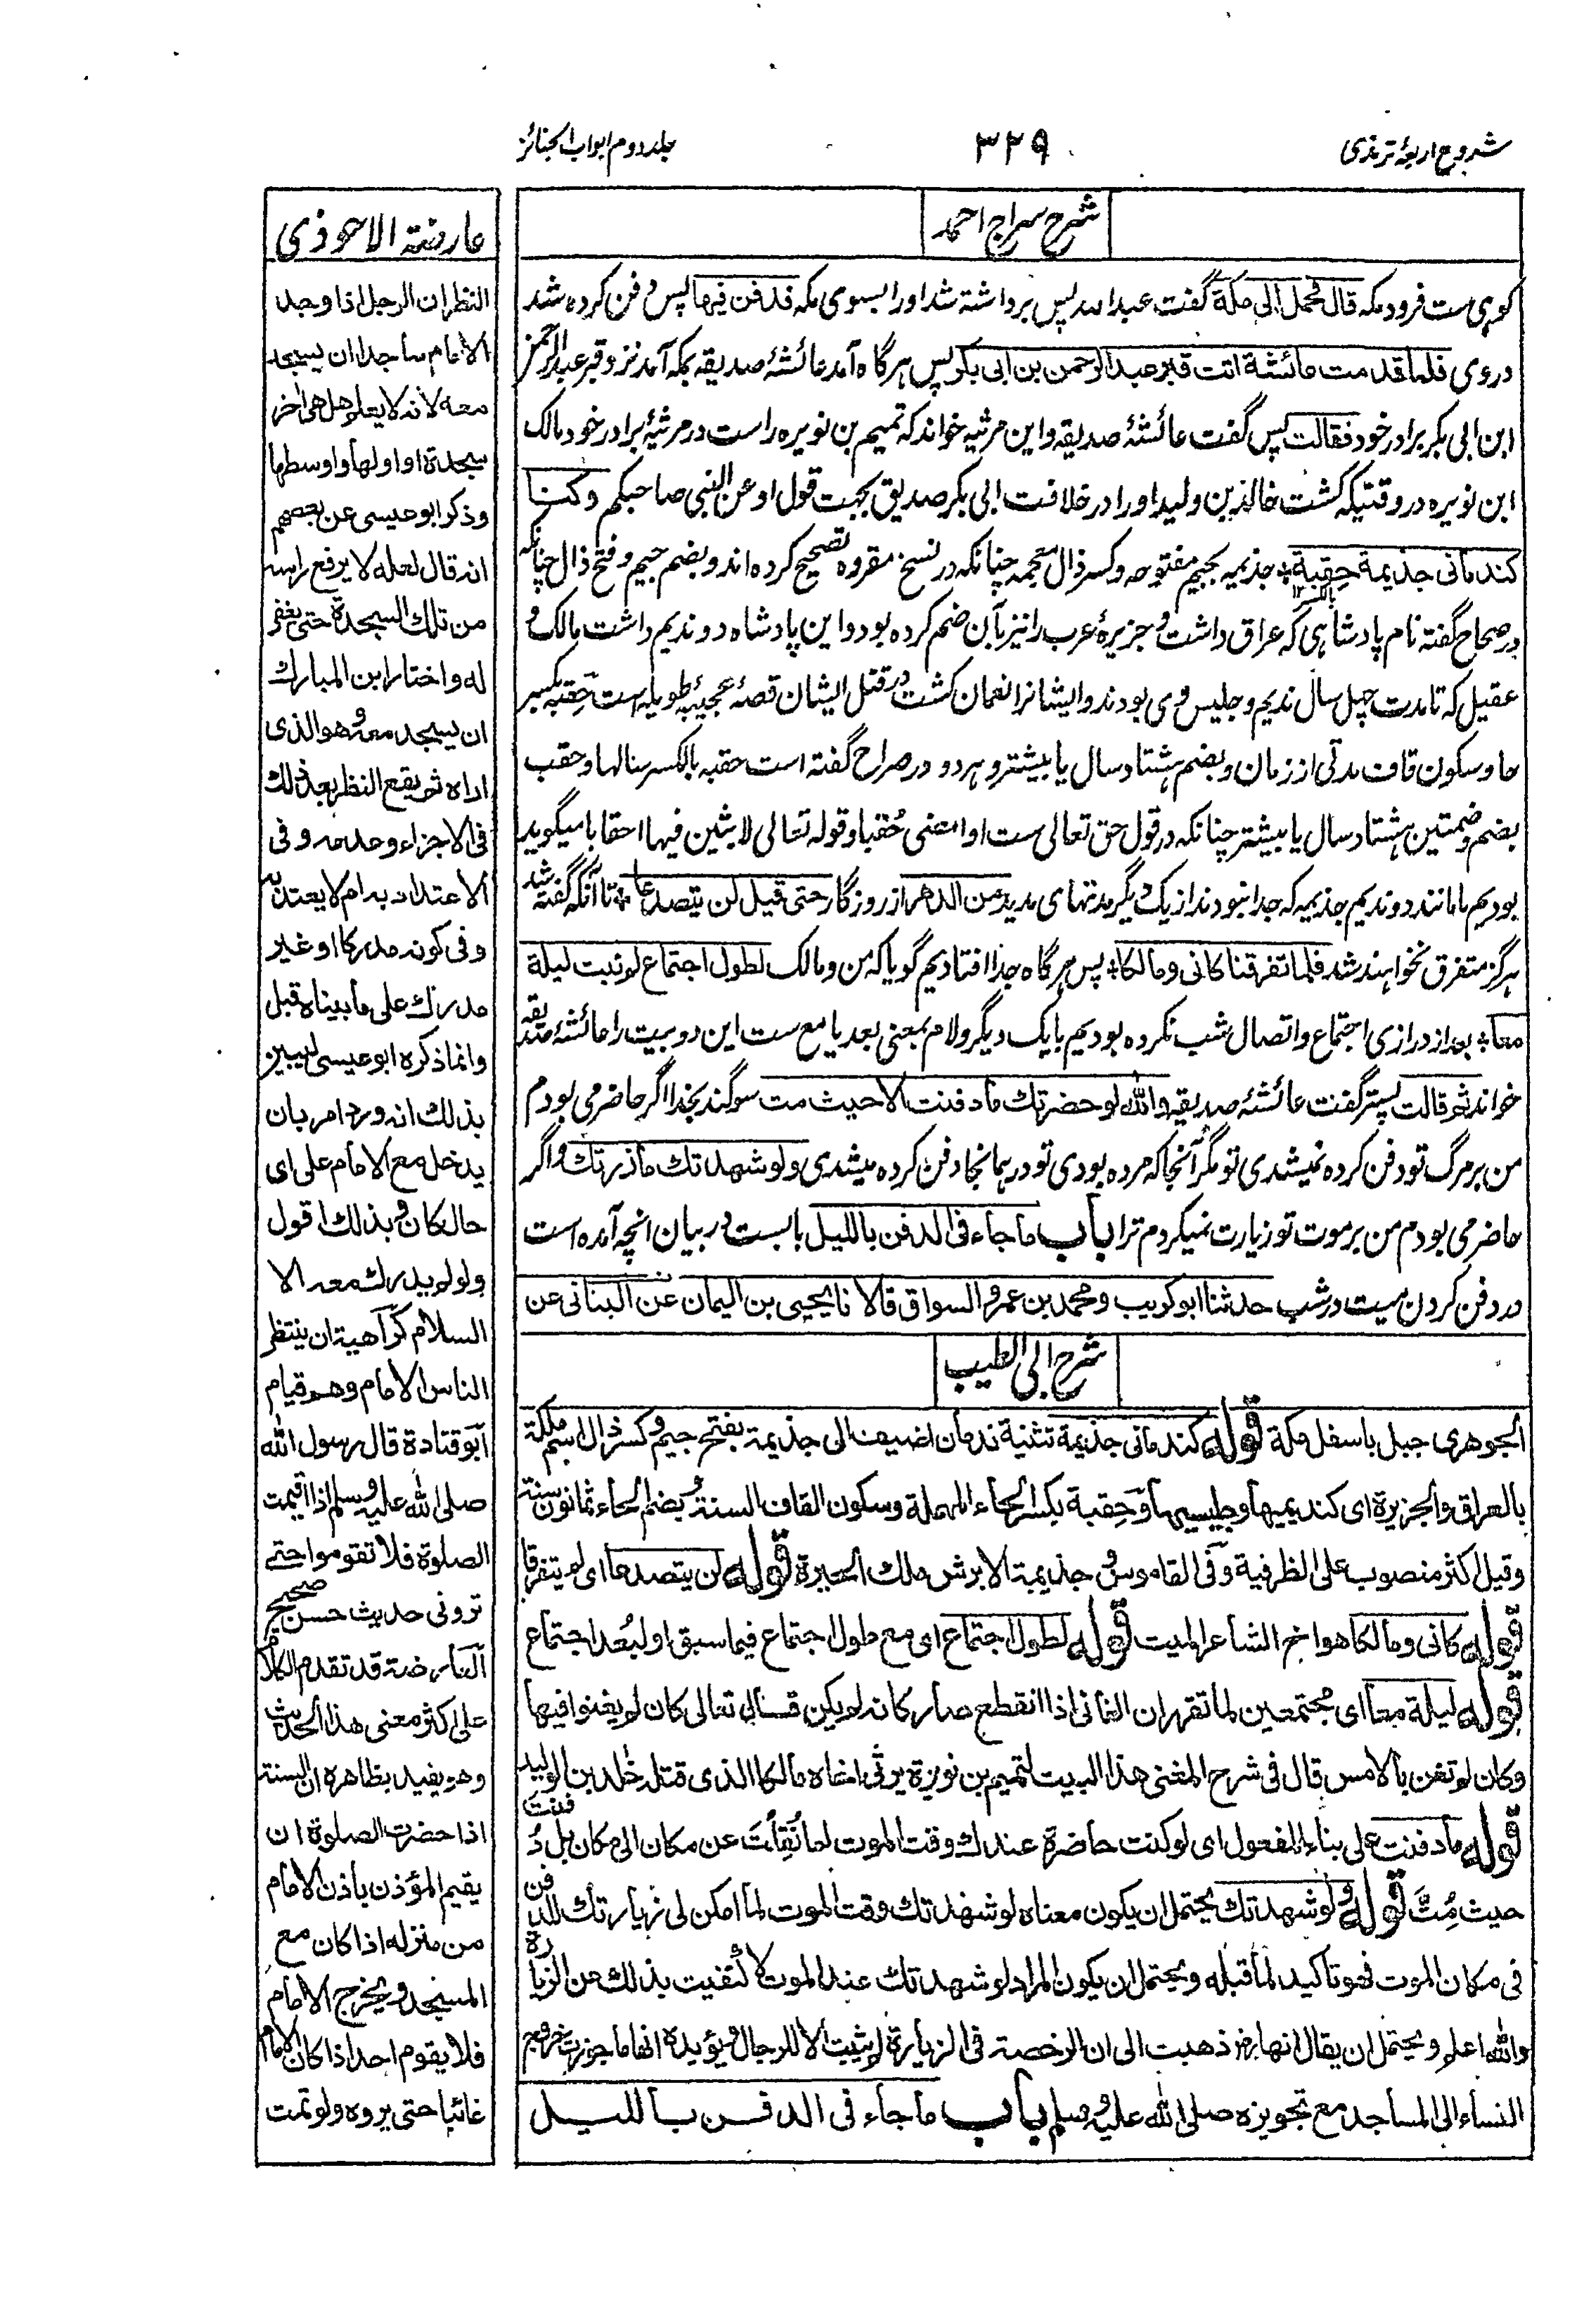 شروح اربعهٔ ترمذی
۳۲۹
جلد دوم ابواب الجنائز
شرح سراج احمد
کوہی ست فرود مکہ قال فحمل الی مکة گفت عبد اللہ پس برداشته شد او را بسوی مکہ فدفن فیها پس دفن کرده شد
در وی فلما قدمت عائشة اتت قبر عبد الرحمن بن ابی بکر پس ہرگاہ آمد عائشۂ صدیقہ بمکہ آمد نزد قبر عبد الرحمن
ابن ابی بکر برادر خود فقالت پس گفت عائشۂ صدیقہ و این مرثیہ خواند کہ تمیم بن نویرہ راست در مرثیۂ برادر خود مالک
ابن نویرہ در وقتیکہ کشت خالد بن ولید او را در خلافت ابی بکر صدیق بجہت قول او عن النبی صاحبکم وکنا
کندمانی جذیمة حِقبة جذیمہ بجیم مفتوحہ و کسر ذال معجمہ چنانکہ در نسخ مقروہ تصحیح کرده اند و بضم جیم و فتح ذال چنانکہ
در صحاح گفتہ نام پادشاہی کہ عراق داشت و جزیرۂ عرب را نیز بآن ضم کرده بود و این پادشاہ دو ندیم داشت مالک و
عقیل کہ تا مدت چہل سال ندیم و جلیس وی بودند و ایشانرا نعمان کشت و در قتل ایشان قصۂ عجیبہ طویلہ است حِقبہ بکسر
حا و سکون قاف مدتی از زمان و بضم ہشتاد سال یا بیشتر و ہر دو در صراح گفتہ است حقبہ بالکسر سالہا و حقب
بضم و ضمتین ہشتاد سال یا بیشتر چنانکہ در قول حق تعالی ست او امضی حُقبا و قولہ تعالی لابثین فیها احقابا میگوید
بودیم ما مانند دو ندیم جذیمہ کہ جدا نبودند از یک دیگر مدتہای مدید من الدهر از روزگار حتی قیل لن یتصدعا تا آنکہ گفتہ شد
ہرگز متفرق نخواہند شد فلما تفرقنا کانی ومالکا پس ہرگاہ جدا افتادیم گویا کہ من و مالک لطول اجتماع لم نبت لیلة
معا بعد از درازی اجتماع و اتصال شب نکردہ بودیم با یک دیگر و لام بمعنی بعد یا مع ست این دو بیت را عائشۂ صدیقہ
خواند ثم قالت پستر گفت عائشۂ صدیقہ واللہ لو حضرتك ما دفنت الا حیث مت سوگند بخدا اگر حاضر می بودم
من بر مرگ تو دفن کرده نمیشدی تو مگر آنجا کہ مرده بودی تو در ہمانجا دفن کرده میشدی ولو شهدتك ما زرتك و اگر
حاضر می بودم من بر موت تو زیارت نمیکردم ترا باب ما جاء فی الدفن باللیل بابست در بیان انچہ آمده است
در دفن کردن میت در شب حدثنا ابو کریب ومحمد بن عمرو السواق قالا نا یحیی بن الیمان عن البنانی عن
شرح ابی الطیب
الجوهری جبل باسفل مكة قوله كندمانی جذیمة تثنیة ندمان اضیف الی جذیمة بفتح جیم وكسر ذال اسم ملكة
بالعراق والجزیرة ای كندیمیها وجلیسیها وحِقبة بكسر الحاء المهملة وسكون القاف السنة وبضم الحاء ثمانون سنة
وقیل اكثر منصوب علی الظرفیة وفی القاموس وجذیمة الابرش ملك الحیرة قوله لن یتصدعا ای لم یتفرقا
قوله كانی ومالكا هو اخ الشاعر المیت قوله لطول اجتماع ای مع طول اجتماع فیما سبق او لبُعد اجتماع
قوله لیلة معا ای مجتمعین لما تقرر ان الفانی اذا انقطع صار كانه لم یكن قال تعالی كان لم یغنوا فیها
وكان لم تغن بالامس قال فی شرح المغنی هذا البیت لتمیم بن نویرة یرثی اخاه مالكا الذی قتله خٰلد بن الولید
قوله ما دفنت علی بناء المفعول ای لو كنت حاضرة عندك وقت الموت لما نُقِلْتَ عن مكان الی مكان بل دُفنت
حیث مُتَّ قوله ولو شهدتك یحتمل ان یكون معناه لو شهدتك وقت الموت لما امكن لی زیارتك للدفن
فی مكان الموت فهو تاكید لما قبله ویحتمل ان یكون المراد لو شهدتك عند الموت لاكتفیت بذلك عن الزیارة
والله اعلم ویحتمل ان یقال انها رض ذهبت الی ان الرخصة فی الزیارة لم یثبت الا للرجال ویؤیده انها ما جوزت خروج
النساء الی المساجد مع تجویزه صلی الله علیه وسلم باب ما جاء فی الدفن باللیل
عارضة الاحوذی
النظر ان الرجل اذا وجد
الامام ساجدا ان یسجد
معه لانه لا یعلم هل هی اخر
سجدة او اولها او اوسطها
وذكر ابو عیسی عن بعضهم
انه قال لعله لا یرفع راسه
من تلك السجدة حتی یغفر
له واختار ابن المبارك
ان یسجد معه وهو الذی
اراه ثم یقع النظر بعد ذلك
فی الاجزاء وعدمه وفی
الاعتداد به ام لا یعتد به
وفی كونه مدركا او غیر
مدرك علی ما بیناه قبل
وانما ذكره ابو عیسی لیبین
بذلك انه ورد امر بان
یدخل مع الامام علی ای
حال كان وبذلك اقول
ولو لم یدرك معه الا
السلام كراهیة ان ینتظر
الناس الامام وهم قیام
ابو قتادة قال رسول الله
صلی الله علیه وسلم اذا اقیمت
الصلوة فلا تقوموا حتی
ترونی حدیث حسن صحیح
العارضة قد تقدم الكلام
علی اكثر معنی هذا الحدیث
وهو یفید بظاهره ان السنة
اذا حضرت الصلوة ان
یقیم المؤذن باذن الامام
من منزله اذا كان مع
المسجد ویخرج الامام
فلا یقوم احد اذا كان الامام
غائبا حتی یروه ولو تمت